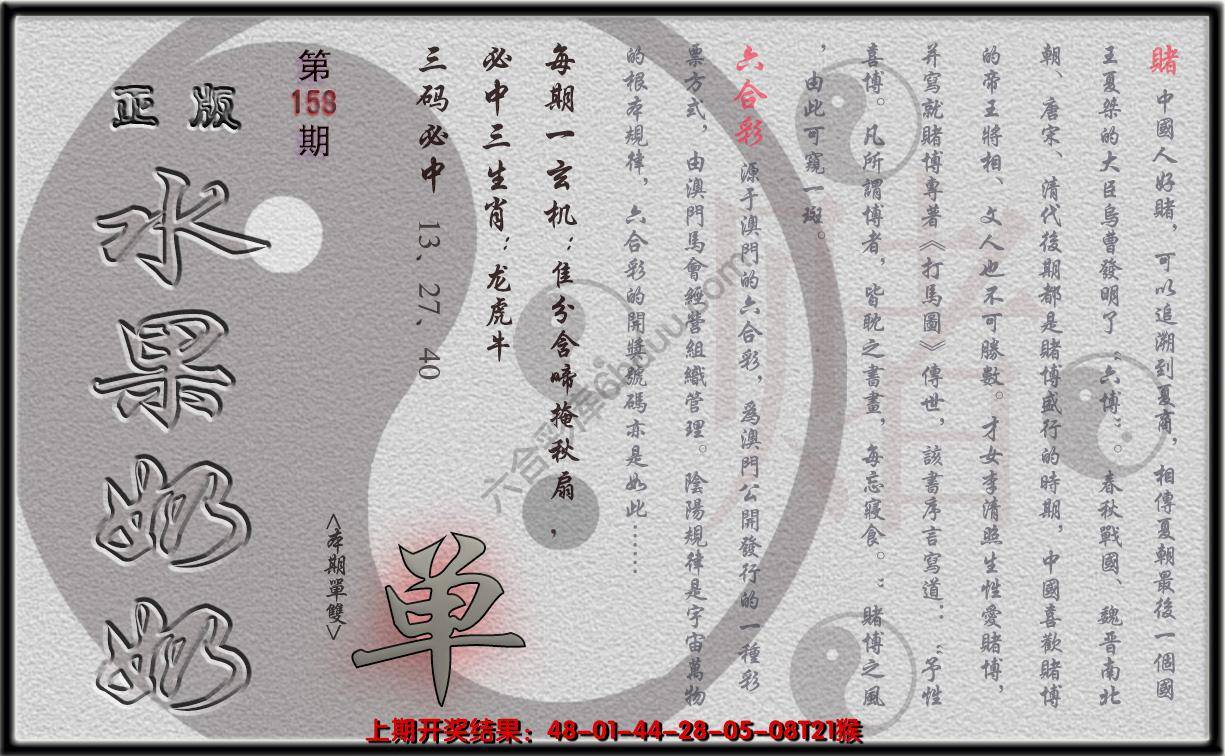 賭 中國人好賭，可以追溯到夏商，相傳夏朝最後一個國
王夏桀的大臣烏曹發明了“六博”。春秋戰國、魏晋南北
朝、唐宋、清代後期都是賭博盛行的時期，中國喜歡賭博
的帝王將相、文人也不可勝數。才女李清照生性愛賭博，
并寫就賭博專著《打馬圖》傳世，該書序言寫道：“予性
喜博。凡所謂博者，皆耽之書畫，每忘寢食。”賭博之風
，由此可窺一斑。
六合彩 源于澳門的六合彩，爲澳門公開發行的一種彩
票方式，由澳門馬會經營組織管理。陰陽規律是宇宙萬物
的根本規律，六合彩的開獎號碼亦是如此……
每期一玄机：隹分含啼掩秋扇，
必中三生肖：龙虎牛
三码必中 13、27、40
第
158
期
正版
水果奶奶
<本期單雙>
单
六合彩库6hduu.com
上期开奖结果：48-01-44-28-05-08T21猴